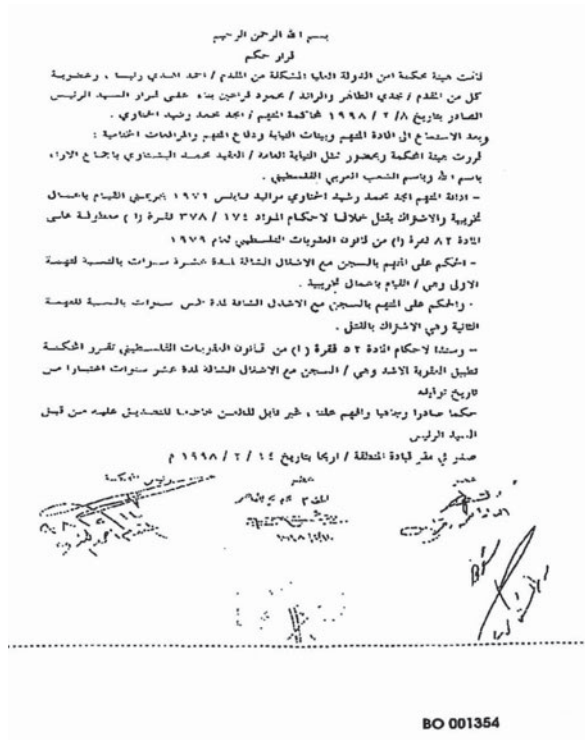 بسم الله الرحمن الرحيم
قرار حكم
هيئة محكمة امن الدولة العليا المشكلة من المقدم / احمد رئيسا ، وعضوية
كل من المقدم / الطاهر والرائد / محمود بناء على قرار السيد الرئيس
الصادر بتاريخ ٨/ ٢ / ١٩٩٨ لمحاكمة المتهم / امجد محمد رشيد الحناوي .
وبعد الاستماع الى افادة المتهم وبينات النيابة ودفاع المتهم والمرافعات الختامية :
قررت هيئة المحكمة وبحضور ممثل النيابة العامة / العقيد محمد البشتاوي باجماع الاراء
باسم الله وباسم الشعب العربي الفلسطيني .
– ادانة المتهم امجد محمد رشيد الحناوي مواليد نابلس بجرمتي القيام باعمال
تخريبية والاشتراك بقتل خلافا لاحكام المواد ١٧٤ / ٣٧٨ فقرة (ا) معطوفة على
المادة ٨٢ فقرة (ا) من قانون العقوبات الفلسطيني لعام ١٩٧٩
– الحكم على المتهم بالسجن مع الاشغال الشاقة لمدة عشرة سنوات بالنسبة للتهمة
الاولى وهي / القيام باعمال تخريبية .
· والحكم على المتهم بالسجن مع الاشغال الشاقة لمدة خمس سنوات بالنسبة للتهمة
الثانية وهي الاشتراك بالقتل .
– وسندا لاحكام المادة ٥٢ فقرة (ا) من قانون العقوبات الفلسطيني تقرر المحكمة
تطبيق العقوبة الاشد وهي / السجن مع الاشغال الشاقة لمدة عشر سنوات اعتبارا من
تاريخ توقيفه
حكما صادرا وجاهيا وافهم علنا ، غير قابل للطعن خاضعا للتصديق عليه من قبل
السيد الرئيس
صدر في مقر قيادة المنطقة / اريحا بتاريخ ١٤ / ٢ / ١٩٩٨ م
عضو
عضو
رئيس المحكمة
BO 001354